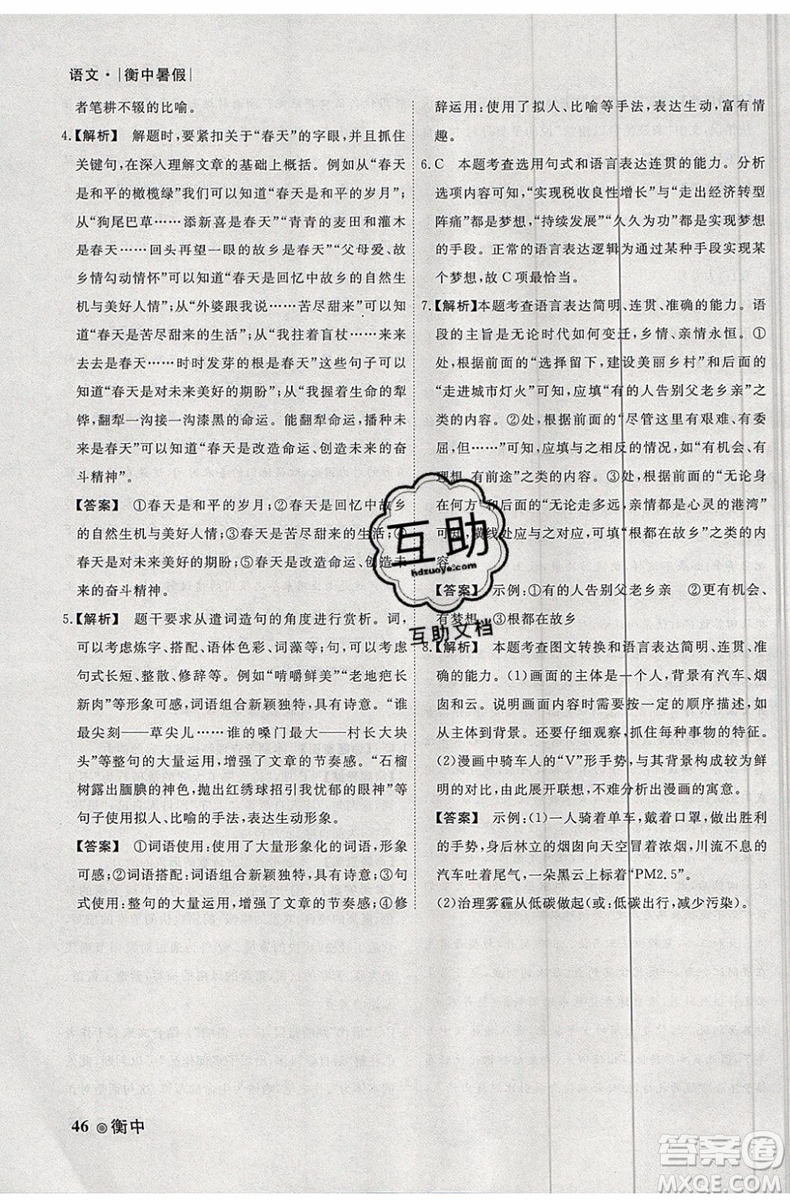 语文·|衡中暑假|
者笔耕不辍的比喻。
4.【解析】 解题时,要紧扣关于“春天”的字眼,并且抓住
关键句,在深入理解文章的基础上概括。例如从“春天
是和平的橄榄绿”我们可以知道“春天是和平的岁月”;
从“狗尾巴草……添新喜是春天”“青青的麦田和灌木
是春天……回头再望一眼的故乡是春天”“父母爱、故
乡情勾动情怀”可以知道“春天是回忆中故乡的自然生
机与美好人情”;从“外婆跟我说……苦尽甘来”可知道
“春天是苦尽甜来的生活”;从“扶着盲杖……来来去
去是春天……时时发芽的根是春天”这些句子可以知
道“春天是对未来美好的期盼”;从“春天是命运的犁
铧,翻犁一沟沟漆黑的命运。能翻犁命运的春天”可知
道“春天是改造命运、创造未来的奋
斗精神”。
【答案】 ①春天是和平的岁月;②春天是回忆中故乡
的自然生机与美好人情;③春天是苦尽甘来的生活;④
春天是对未来美好的期盼;⑤春天是改造命运、创造未
来的奋斗精神。
5.【解析】 题干要求从遣词造句的角度进行赏析。词,
可以考虑炼字、搭配、语体色彩、词藻等;句,可以考虑
句式长短、整散、修辞等。例如“啃嚼鲜美”“老地疤长
新肉”等形象可感,词语组合新颖独特,具有诗意。“谁
最尖刻——草尖儿……谁的嗓门最大——村长大块
头”等整句的大量运用,增强了文章的节奏感。“石榴
树露出腼腆的神色,抛出红绣球招引我忧郁的眼神”等
句子使用拟人、比喻的手法,表达生动形象。
【答案】 ①词语使用:使用了大量形象化的词语,形象
可感;②词语搭配:词语组合新颖独特,具有诗意;③句
式使用:整句的大量运用,增强了文章的节奏感;④修
辞运用:使用了拟人、比喻等手法,表达生动,富有情
趣。
6.C 本题考查选用句式和语言表达连贯的能力。分析
选项内容可知,“实现税收良性增长”与“走出经济转型
阵痛”都是梦想,“持续发展”“久久为功”是实现梦想
的手段。正常的语言表达逻辑为通过某种手段实现某
个梦想,故C项最恰当。
7.【解析】本题考查语言表达简明、连贯、准确的能力。语
段的主旨是无论时代如何变迁,乡情、亲情永恒。①
处,根据前面的“选择留下,建设美丽乡村”和后面的
“走进城市灯火”可知,应填“有的人告别父老乡亲”之
类的内容。②处,根据前面的“尽管这里有艰难、有委
屈,但……”可知,应填与之相反的情况,如“有机会、有
理想、有前途”之类的内容。③处,前面的“无论身
在何方”和后面的“无论走多远,亲情都是心灵的港湾”
可知,横线处应与之对应,可填“根都在故乡”之类的内
容。
【答案】 示例:①有的人告别父老乡亲 ②更有机会、
有梦想 ③根都在故乡
8.【解析】 本题考查图文转换和语言表达简明、连贯、准
确的能力。(1)画面的主体是一个人,背景有汽车、烟
囱和云。描述画面内容时需要按照一定的顺序描述,如
从主体到背景。还要仔细观察,抓住每种事物的特征。
(2)漫画中骑车人的“V”形手势,与其背景形成了鲜
明的对比,由此展开联想,不难分析出漫画的寓意。
【答案】 示例:(1)一人骑着单车,戴着口罩,做出胜利
的手势,身后林立的烟囱向天空冒着浓烟,川流不息的
汽车吐着尾气,一朵黑云上标着“PM2.5”。
(2)治理雾霾从低碳做起(或:低碳出行,减少污染)。
互助
hdzuoye.com
互助文档
46 衡中
答案圈
MXQE.COM